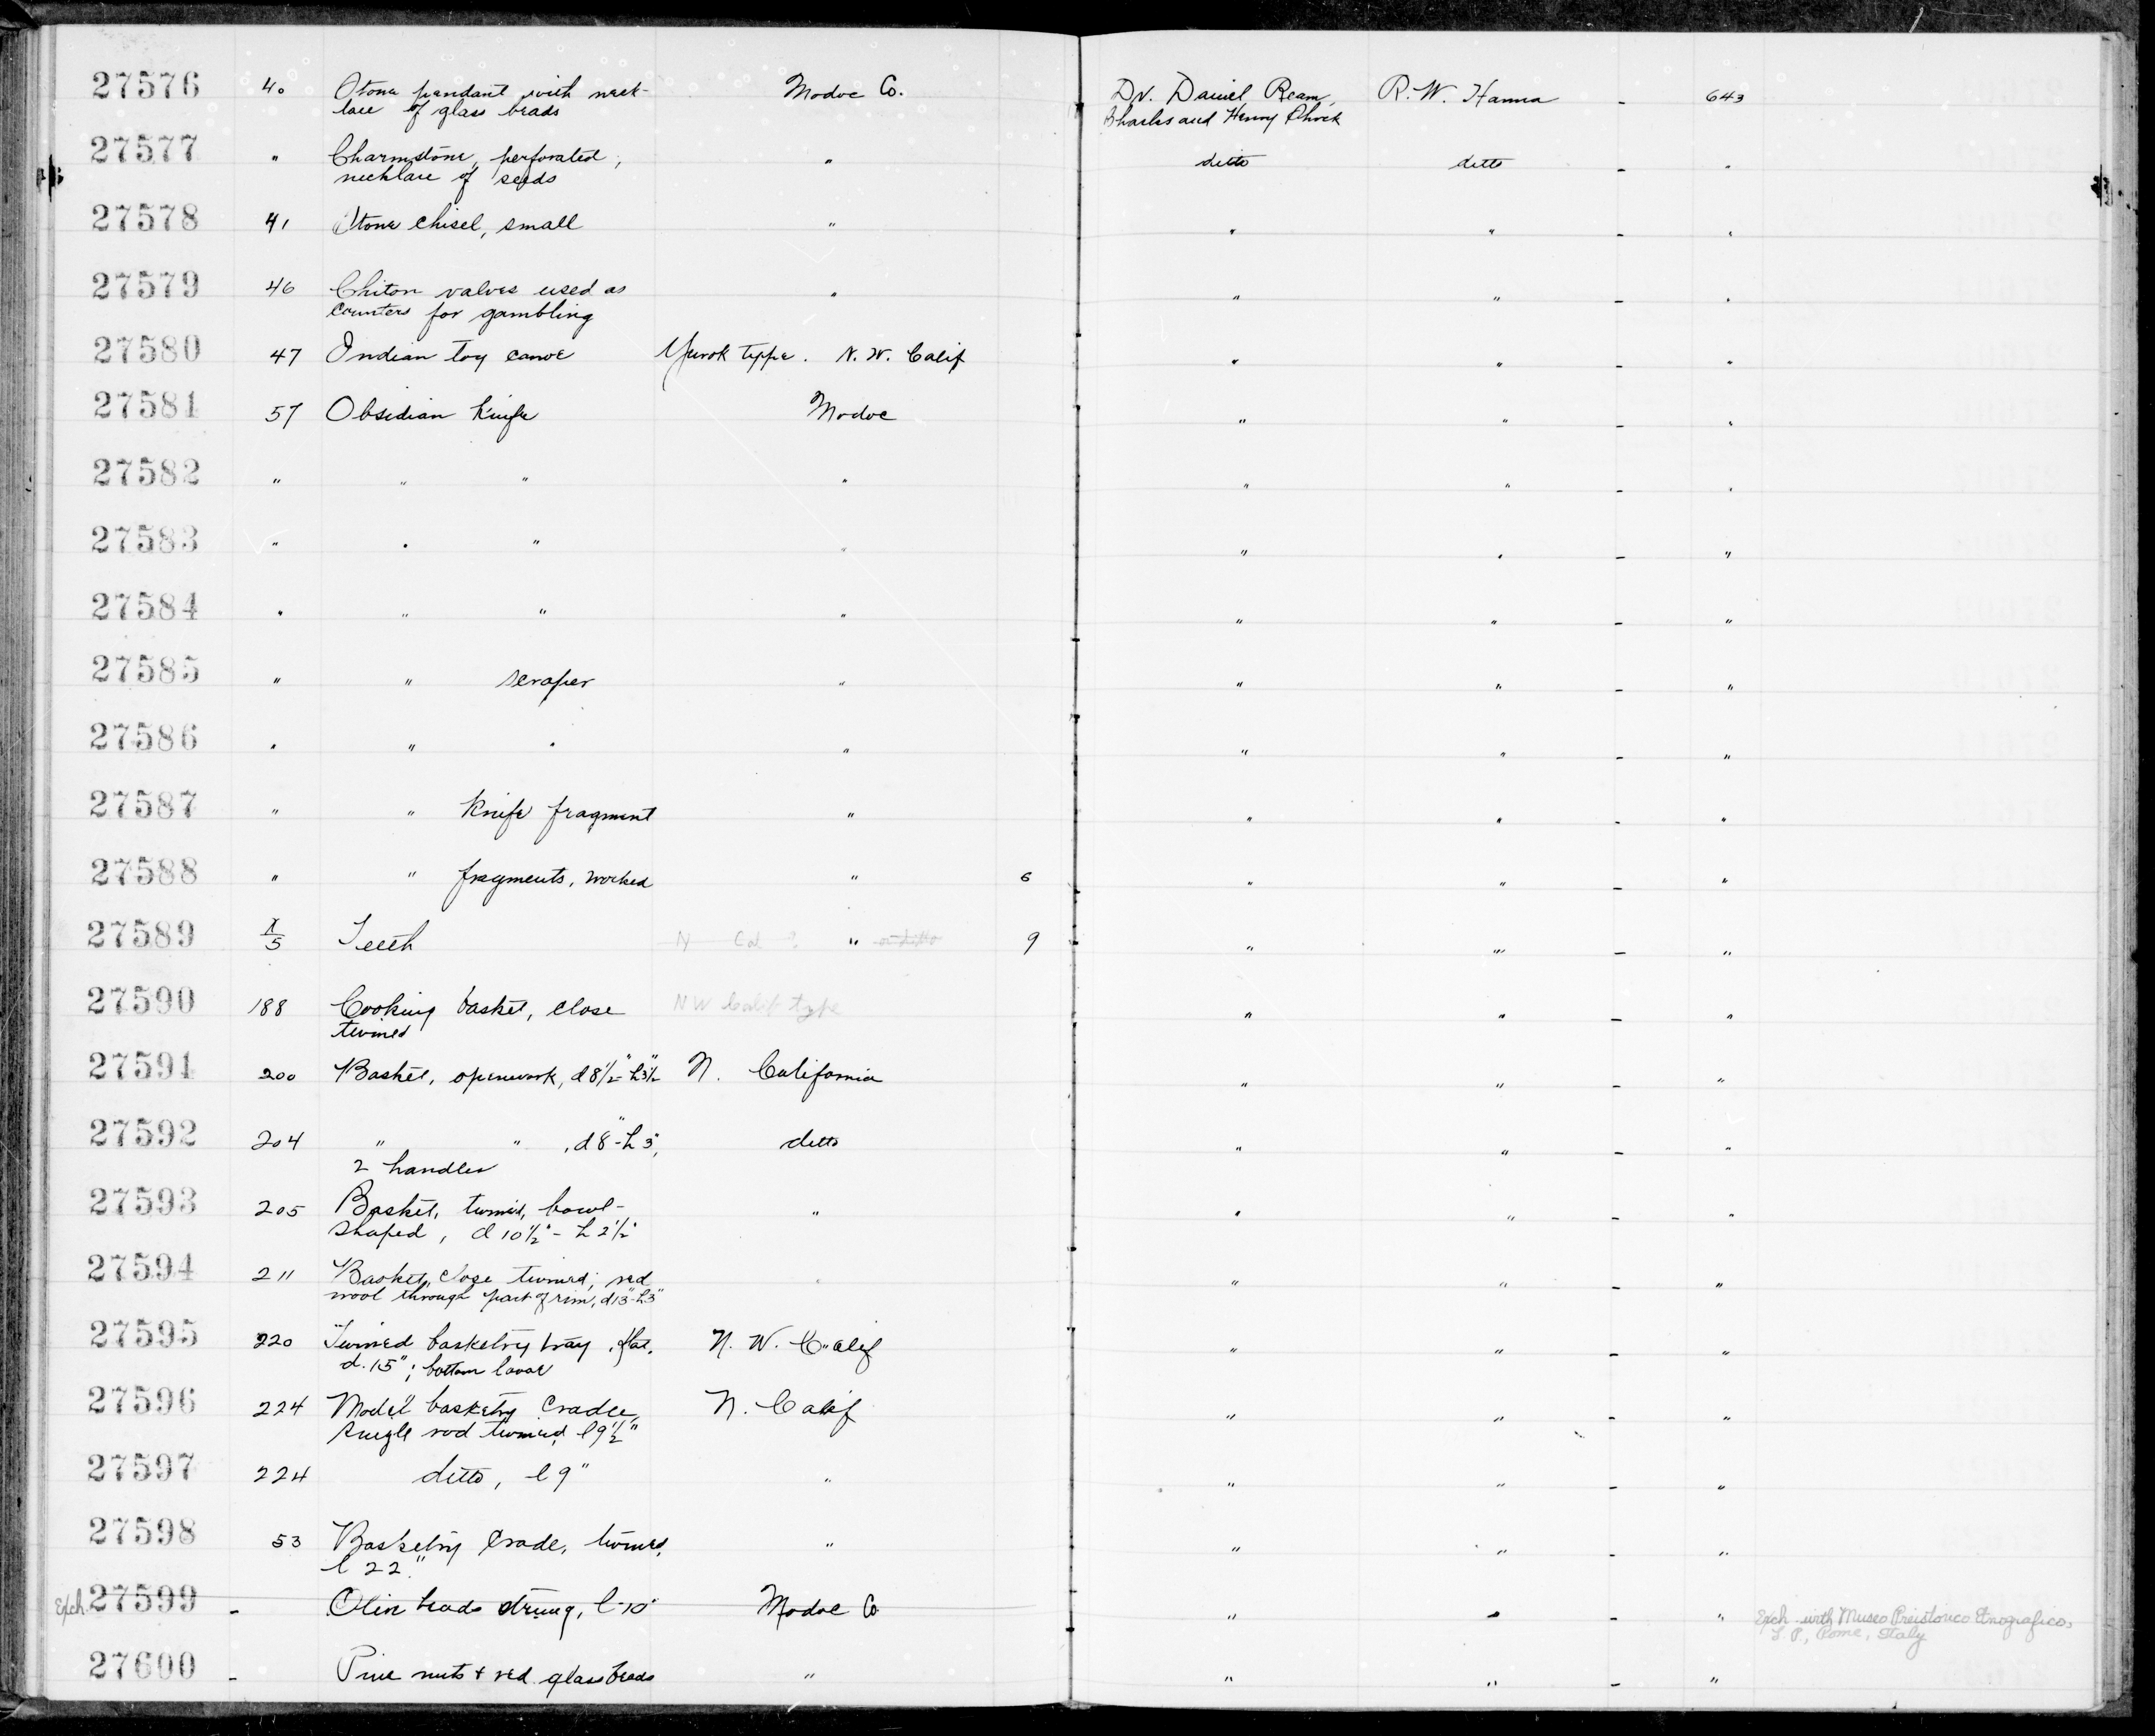 27576 40 Stone pendant with neck- Modoc Co. Dr. Daniel Ream, R. W. Hanna - 643
lace of glass beads and Henry
27577 " Charmstone, perforated, " ditto ditto - "
necklace of seeds
27578 41 Stone chisel, small " " " - "
27579 46 Chiton valves used as " " " - "
counters for gambling
27580 47 Indian toy canoe Yurok type. N. W. Calif " " - "
27581 57 Obsidian knife Modoc " " - "
27582 " " " " " " - "
27583 " " " " " " - "
27584 " " " " " " - "
27585 " " scraper " " " - "
27586 " " " " " " - "
27587 " " knife fragment " " " - "
27588 " " fragments, worked " 6 " " - "
27589 X/5 Teeth N Cal ? " or ditto 9 " " - "
27590 188 Cooking basket, close NW Calif type " " - "
twined
27591 200 Basket, openwork, d 8½" - h 3½" N. California " " - "
27592 204 " " , d 8" - h 3", ditto " " - "
2 handles
27593 205 Basket, twined, bowl- " " " - "
shaped, d 10½" - h 2½"
27594 211 Basket, close twined; red " " " - "
wool through part of rim, d 13" - h 3"
27595 220 Twined basketry tray, flat, N. W. Calif " " - "
d. 15"; bottom
27596 224 Model basketry cradle, N. Calif " " - "
single rod twined, l 9½"
27597 224 ditto, l 9" " " " - "
27598 53 Basketry Crade, twined, " " " - "
l 22"
Exch. 27599 - Oliv beads strung, l - 10" Modoc Co " " - " Exch. with Museo Preistorico Etnografico,
L. P., Rome, Italy
27600 - Pine nuts + red glass beads " " " - "